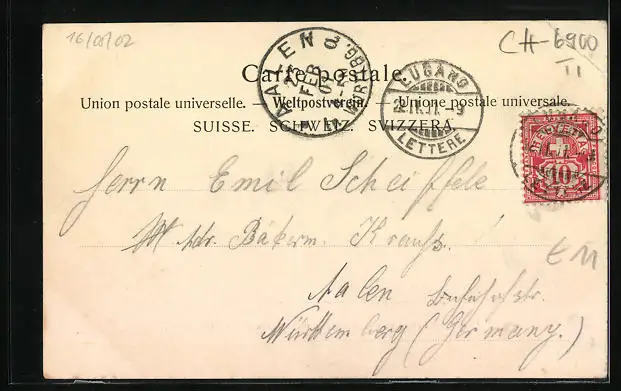 16/08/02
CH-6900
TI
Carte postale.
Union postale universelle. — Weltpostverein. — Unione postale universale.
SUISSE. SCHWEIZ. SVIZZERA.
AALEN
23 FEB
LUGANO
LETTERE
HELVETIA
10
Herrn Emil Scheiffele
Adr. Bäkerm. Krauß.
Aalen Bahnhofstr.
Württemberg (Germany.)